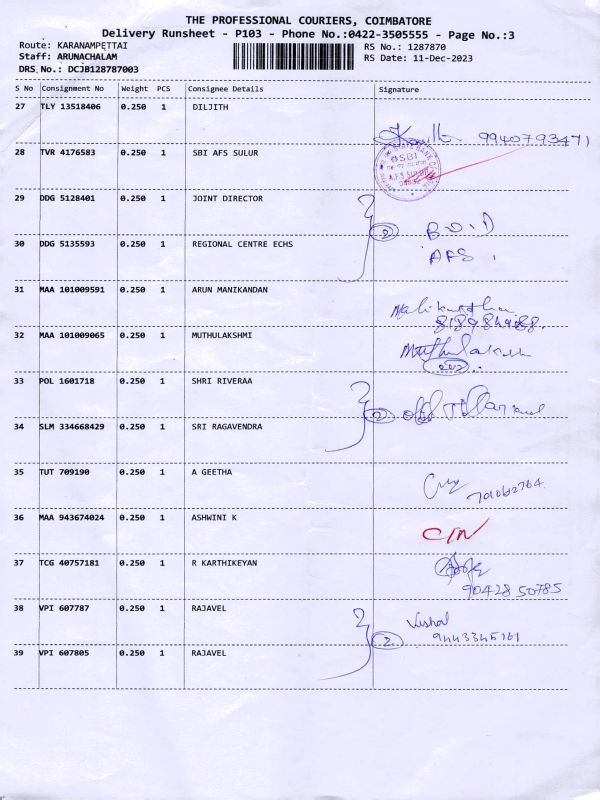 THE PROFESSIONAL COURIERS, COIMBATORE
Delivery Runsheet - P103 - Phone No.:0422-3505555 - Page No.:3
Route: KARANAMPETTAI
RS No.: 1287870
Staff: ARUNACHALAM
RS Date: 11-Dec-2023
DRS No.: DCJB128787003
S No Consignment No Weight PCS Consignee Details Signature
27 TLY 13518406 0.250 1 DILJITH
9940793471
28 TVR 4176583 0.250 1 SBI AFS SULUR
SBI
A.F.S SULUR
29 DDG 5128401 0.250 1 JOINT DIRECTOR
2
30 DDG 5135593 0.250 1 REGIONAL CENTRE ECHS
AFS
31 MAA 101009591 0.250 1 ARUN MANIKANDAN
32 MAA 101009065 0.250 1 MUTHULAKSHMI
Muthulakshmi
33 POL 1601718 0.250 1 SHRI RIVERAA
2
34 SLM 334668429 0.250 1 SRI RAGAVENDRA
35 TUT 709190 0.250 1 A GEETHA
36 MAA 943674024 0.250 1 ASHWINI K
C/N
37 TCG 40757181 0.250 1 R KARTHIKEYAN
9042850785
38 VPI 607787 0.250 1 RAJAVEL
Vishal
2
9443345161
39 VPI 607805 0.250 1 RAJAVEL